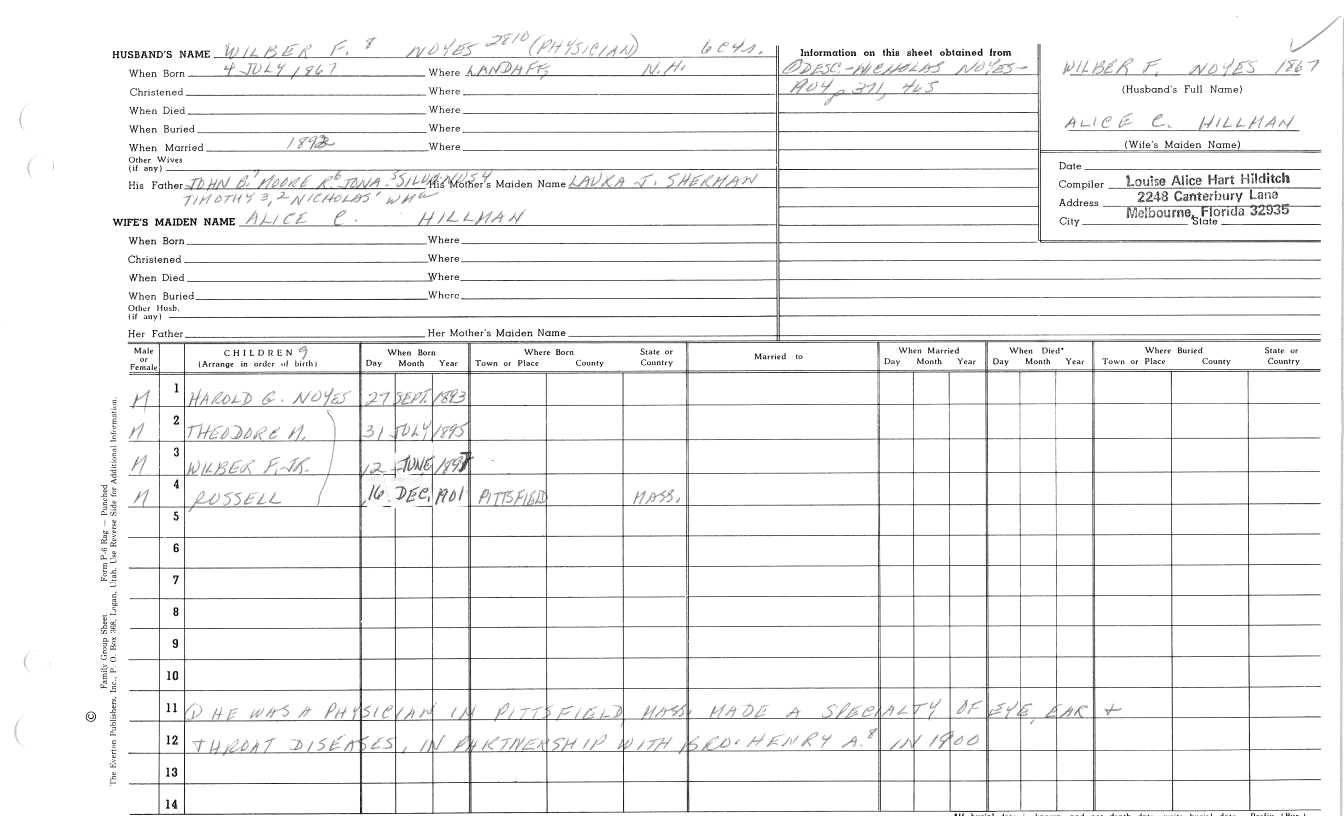 HUSBAND'S NAME WILBER F. 8 NOYES 2810 (PHYSICIAN)
When Born 4 JULY 1867 Where LANDAFF, N.H.
Christened Where
When Died Where
When Buried Where
When Married Where
Other Wives
(if any)
His Father JOHN B. 7 MOORE R. 6 JONA. 5 His Mother's Maiden Name LAURA J. SHERMAN
TIMOTHY 3, 2 NICHOLAS' WM
WIFE'S MAIDEN NAME ALICE C. HILLMAN
When Born Where
Christened Where
When Died Where
When Buried Where
Other Husb.
(if any)
Her Father Her Mother's Maiden Name
Information on this sheet obtained from
① DESC.-NICHOLAS NOYES-
371, 465
WILBER F. NOYES 1867
(Husband's Full Name)
ALICE C. HILLMAN
(Wife's Maiden Name)
Date
Compiler Louise Alice Hart Hilditch
Address 2248 Canterbury Lane
Melbourne, Florida 32935
City State
Male or Female CHILDREN 9 (Arrange in order of birth) When Born Day Month Year Where Born Town or Place County State or Country Married to When Married Day Month Year When Died* Day Month Year Where Buried Town or Place County State or Country
M 1 HAROLD G. NOYES 27 SEPT. 1893
M 2 THEODORE N. 31 JULY 1895
M 3 WILBER F. JR. 12 JUNE 1897
M 4 RUSSELL 16 DEC. 1901 PITTSFIELD MASS.
5
6
7
8
9
10
11 ① HE WAS A PHYSICIAN IN PITTSFIELD, MASS. MADE A SPECIALTY OF EYE, EAR +
12 THROAT DISEASES, IN PARTNERSHIP WITH BRO. HENRY A. 8 IN 1900
13
14
© Family Group Sheet Form P-6 Rag — Punched
The Everton Publishers, Inc., P. O. Box 368, Logan, Utah. Use Reverse Side for Additional Information.